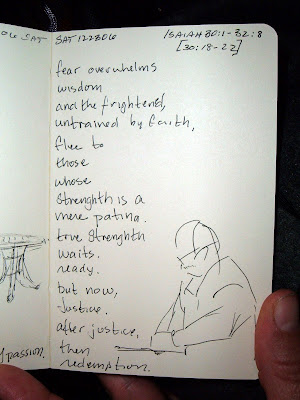 06 SAT
SAT 122306
ISAIAH 30:1-32:8
[30:18-22]
fear overwhelms
wisdom
and the frightened,
untrained by faith,
flee to
those
whose
strenghth is a
mere patina.
true strenghth
waits.
ready.
but now,
justice.
after justice,
then
redemption.
passion.